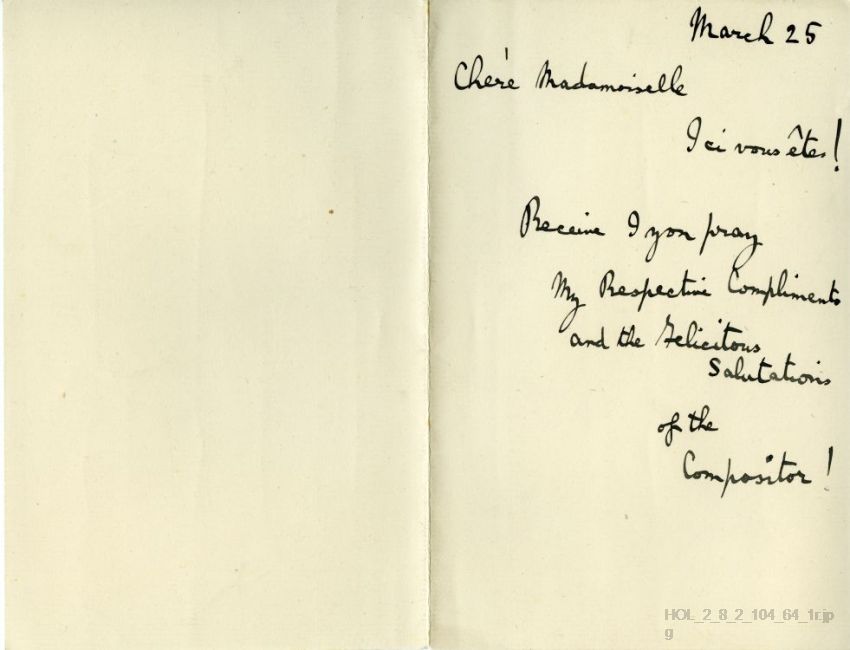 March 25
Chère Madamoiselle
Ici vous êtes!
Receive I you pray
My Respective Compliments
and the Felicitous
Salutations
of the
Compositor!
HOL_2_8_2_104_64_1r.jp
g